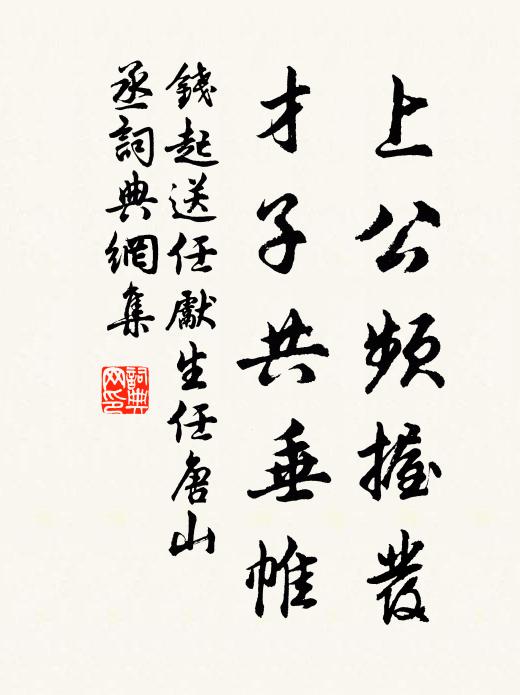 上公頻握髮
才子共垂帷
錢起送任獻生任唐山
丞詞典網集
詞典网印